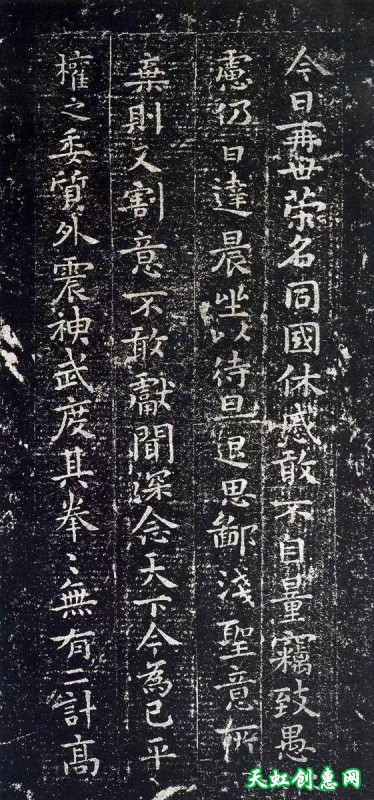 今日再世荣名同國休慼敢不自量竊致愚
慮仍日達晨坐以待旦退思鄙淺聖意所
棄則又割意不敢獻聞深念天下今為已平
權之委質外震神武度其拳〻無有二計高
天虹创惠网